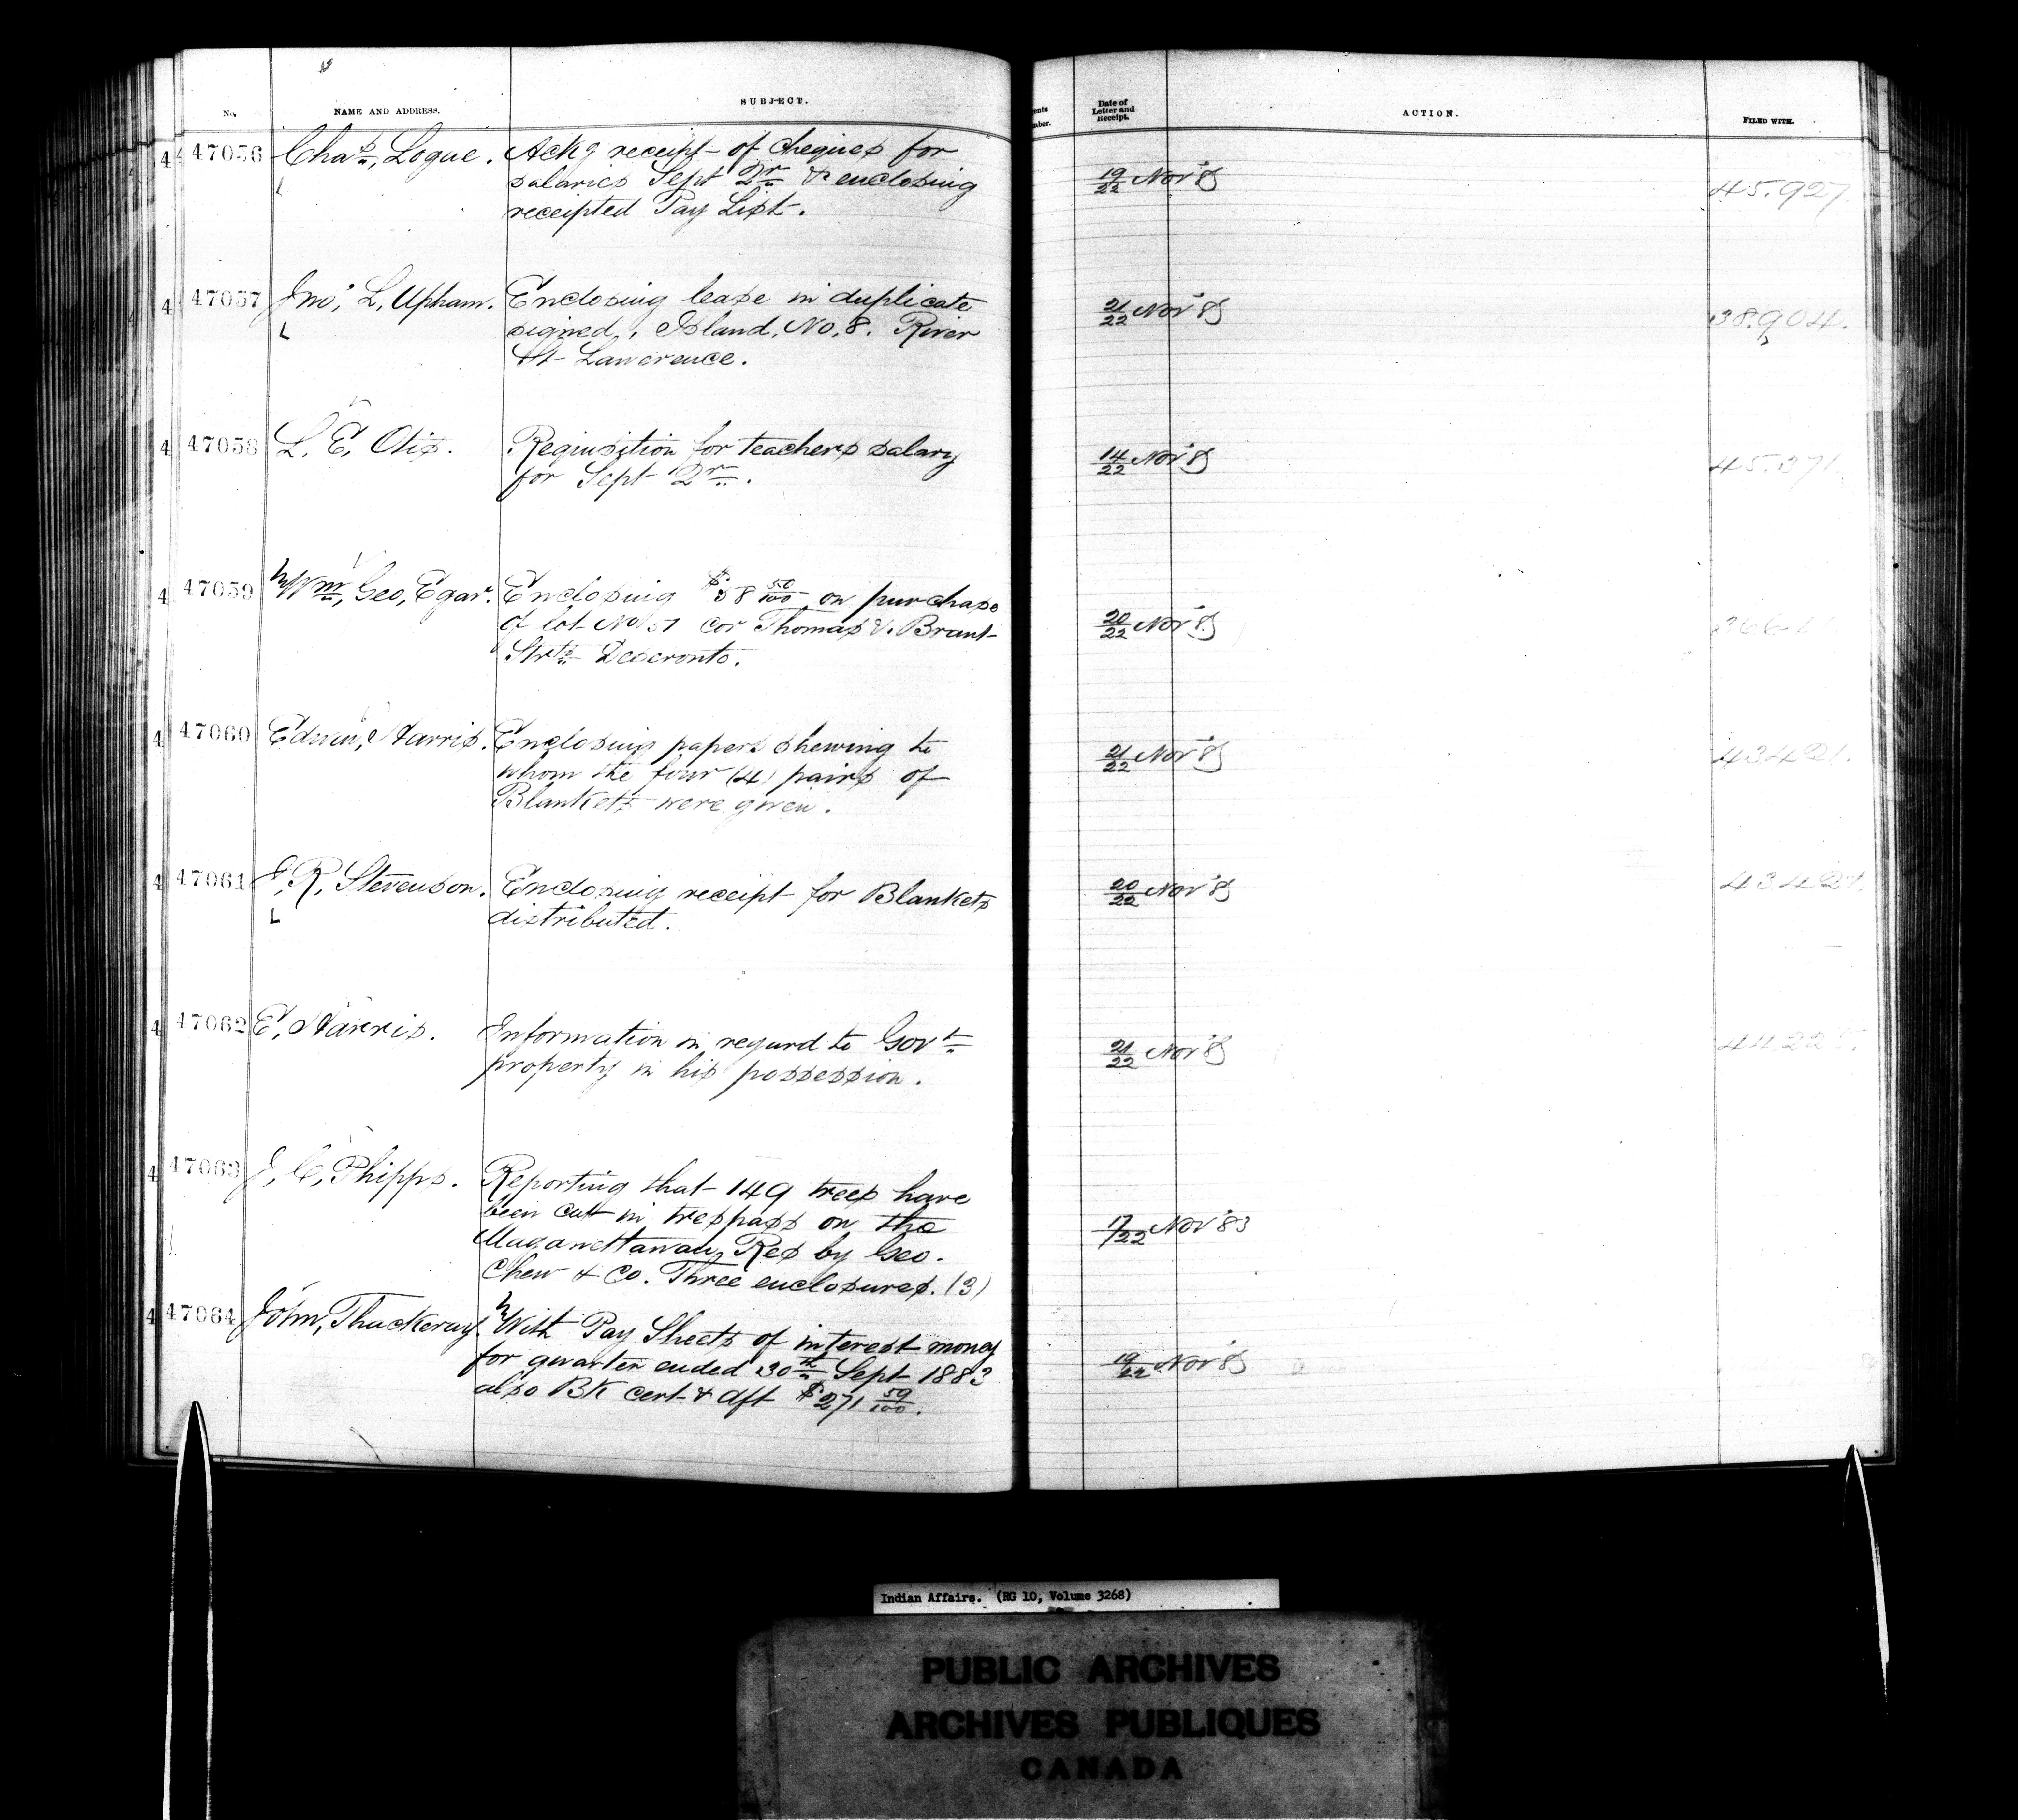 No.
NAME AND ADDRESS.
SUBJECT.
Date of
Letter and
Receipt.
ACTION.
FILED WITH.
47056 Chas, Logue. Ackg receipt of cheques for
salaries Sept Qr & enclosing
receipted Pay List.
19/22 Nov '83
45.927.
47057 Jno, L, Upham. Enclosing lease in duplicate
signed, Island, No, 8. River
St Lawerence.
21/22 Nov '83
38.904.
47058 L, E, Otis. Requisition for teachers salary
for Sept Qr.
14/22 Nov '83
45.371
47059 Wm, Geo, Egar. Enclosing $38 50/100 on purchase
of lot No 57 cor Thomas & Brant
Strts Deseronto.
20/22 Nov '83
47060 Edwin, Harris. Enclosing papers shewing to
whom the four (4) pairs of
Blankets were given.
21/22 Nov '83
43421.
47061 J, R, Stevenson. Enclosing receipt for Blankets
distributed.
20/22 Nov '83
43421.
47062 E, Harris. Information in regard to Govt
property in his possession.
21/22 Nov '83
47063 J, C, Phipps. Reporting that 149 trees have
been cut in trespass on the
Maganettawan Res by Geo.
Chew & Co. Three enclosures. (3)
17/22 Nov '83
47064 John, Thackeray. With Pay Sheets of interest money
for quarter ended 30th Sept 1883
also Bk cert & dft $271 59/100.
19/22 Nov '83
Indian Affairs. (RG 10, Volume 3268)
PUBLIC ARCHIVES
ARCHIVES PUBLIQUES
CANADA